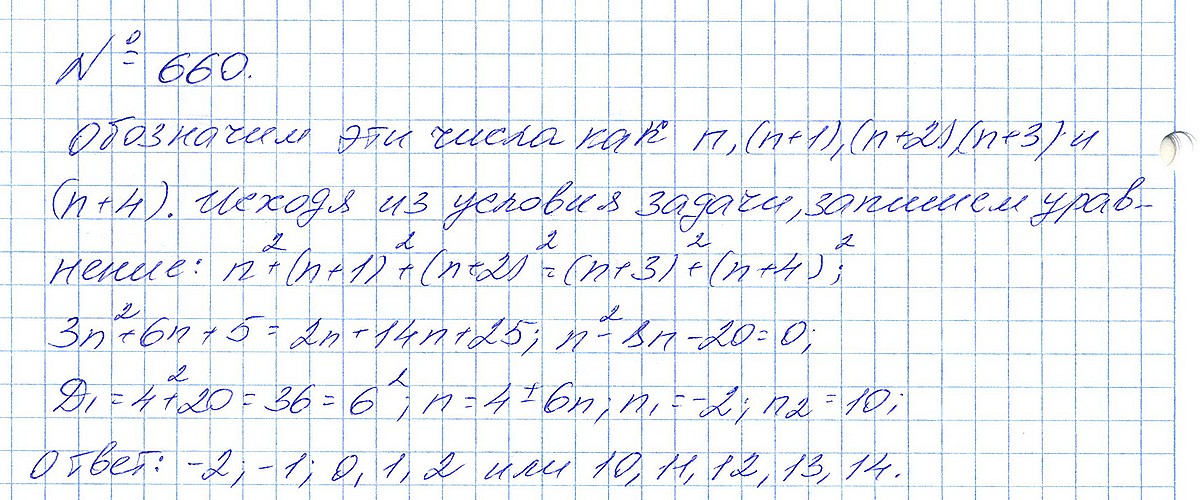 № 660.
Обозначим эти числа как n, (n+1), (n+2), (n+3) и
(n+4). Исходя из условия задачи, запишем урав-
нение: n²+(n+1)²+(n+2)²=(n+3)²+(n+4)²;
3n²+6n+5=2n+14n+25; n²-8n-20=0;
D₁=4²+20=36=6²; n=4±6n; n₁=-2; n₂=10;
Ответ: -2; -1; 0, 1, 2 или 10, 11, 12, 13, 14.